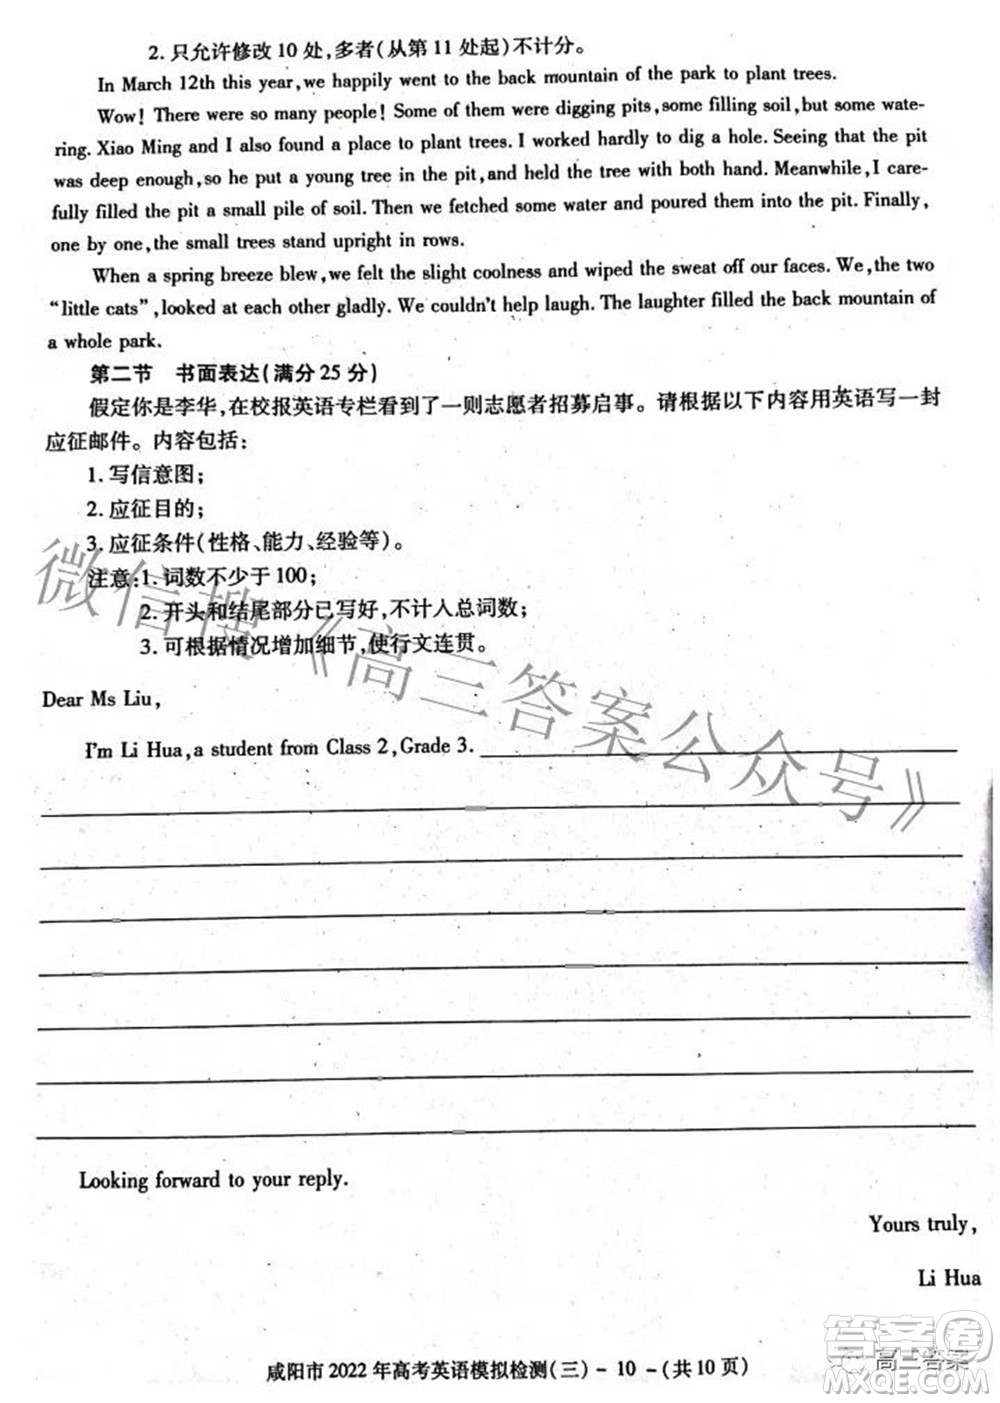 2. 只允许修改 10 处,多者(从第 11 处起)不计分。
In March 12th this year,we happily went to the back mountain of the park to plant trees.
Wow! There were so many people! Some of them were digging pits,some filling soil,but some wate-
ring. Xiao Ming and I also found a place to plant trees. I worked hardly to dig a hole. Seeing that the pit
was deep enough,so he put a young tree in the pit,and held the tree with both hand. Meanwhile,I care-
fully filled the pit a small pile of soil. Then we fetched some water and poured them into the pit. Finally,
one by one,the small trees stand upright in rows.
When a spring breeze blew,we felt the slight coolness and wiped the sweat off our faces. We,the two
“little cats”,looked at each other gladly. We couldn't help laugh. The laughter filled the back mountain of
a whole park.
第二节 书面表达(满分 25 分)
假定你是李华,在校报英语专栏看到了一则志愿者招募启事。请根据以下内容用英语写一封
应征邮件。内容包括:
1. 写信意图;
2. 应征目的;
3. 应征条件(性格、能力、经验等)。
注意:1. 词数不少于 100;
2. 开头和结尾部分已写好,不计人总词数;
3. 可根据情况增加细节,使行文连贯。
微信搜《高三答案公众号》
Dear Ms Liu,
I'm Li Hua,a student from Class 2,Grade 3.
Looking forward to your reply.
Yours truly,
Li Hua
咸阳市 2022 年高考英语模拟检测(三) - 10 - (共 10 页)
高三答案
答案卷
MXQE.COM